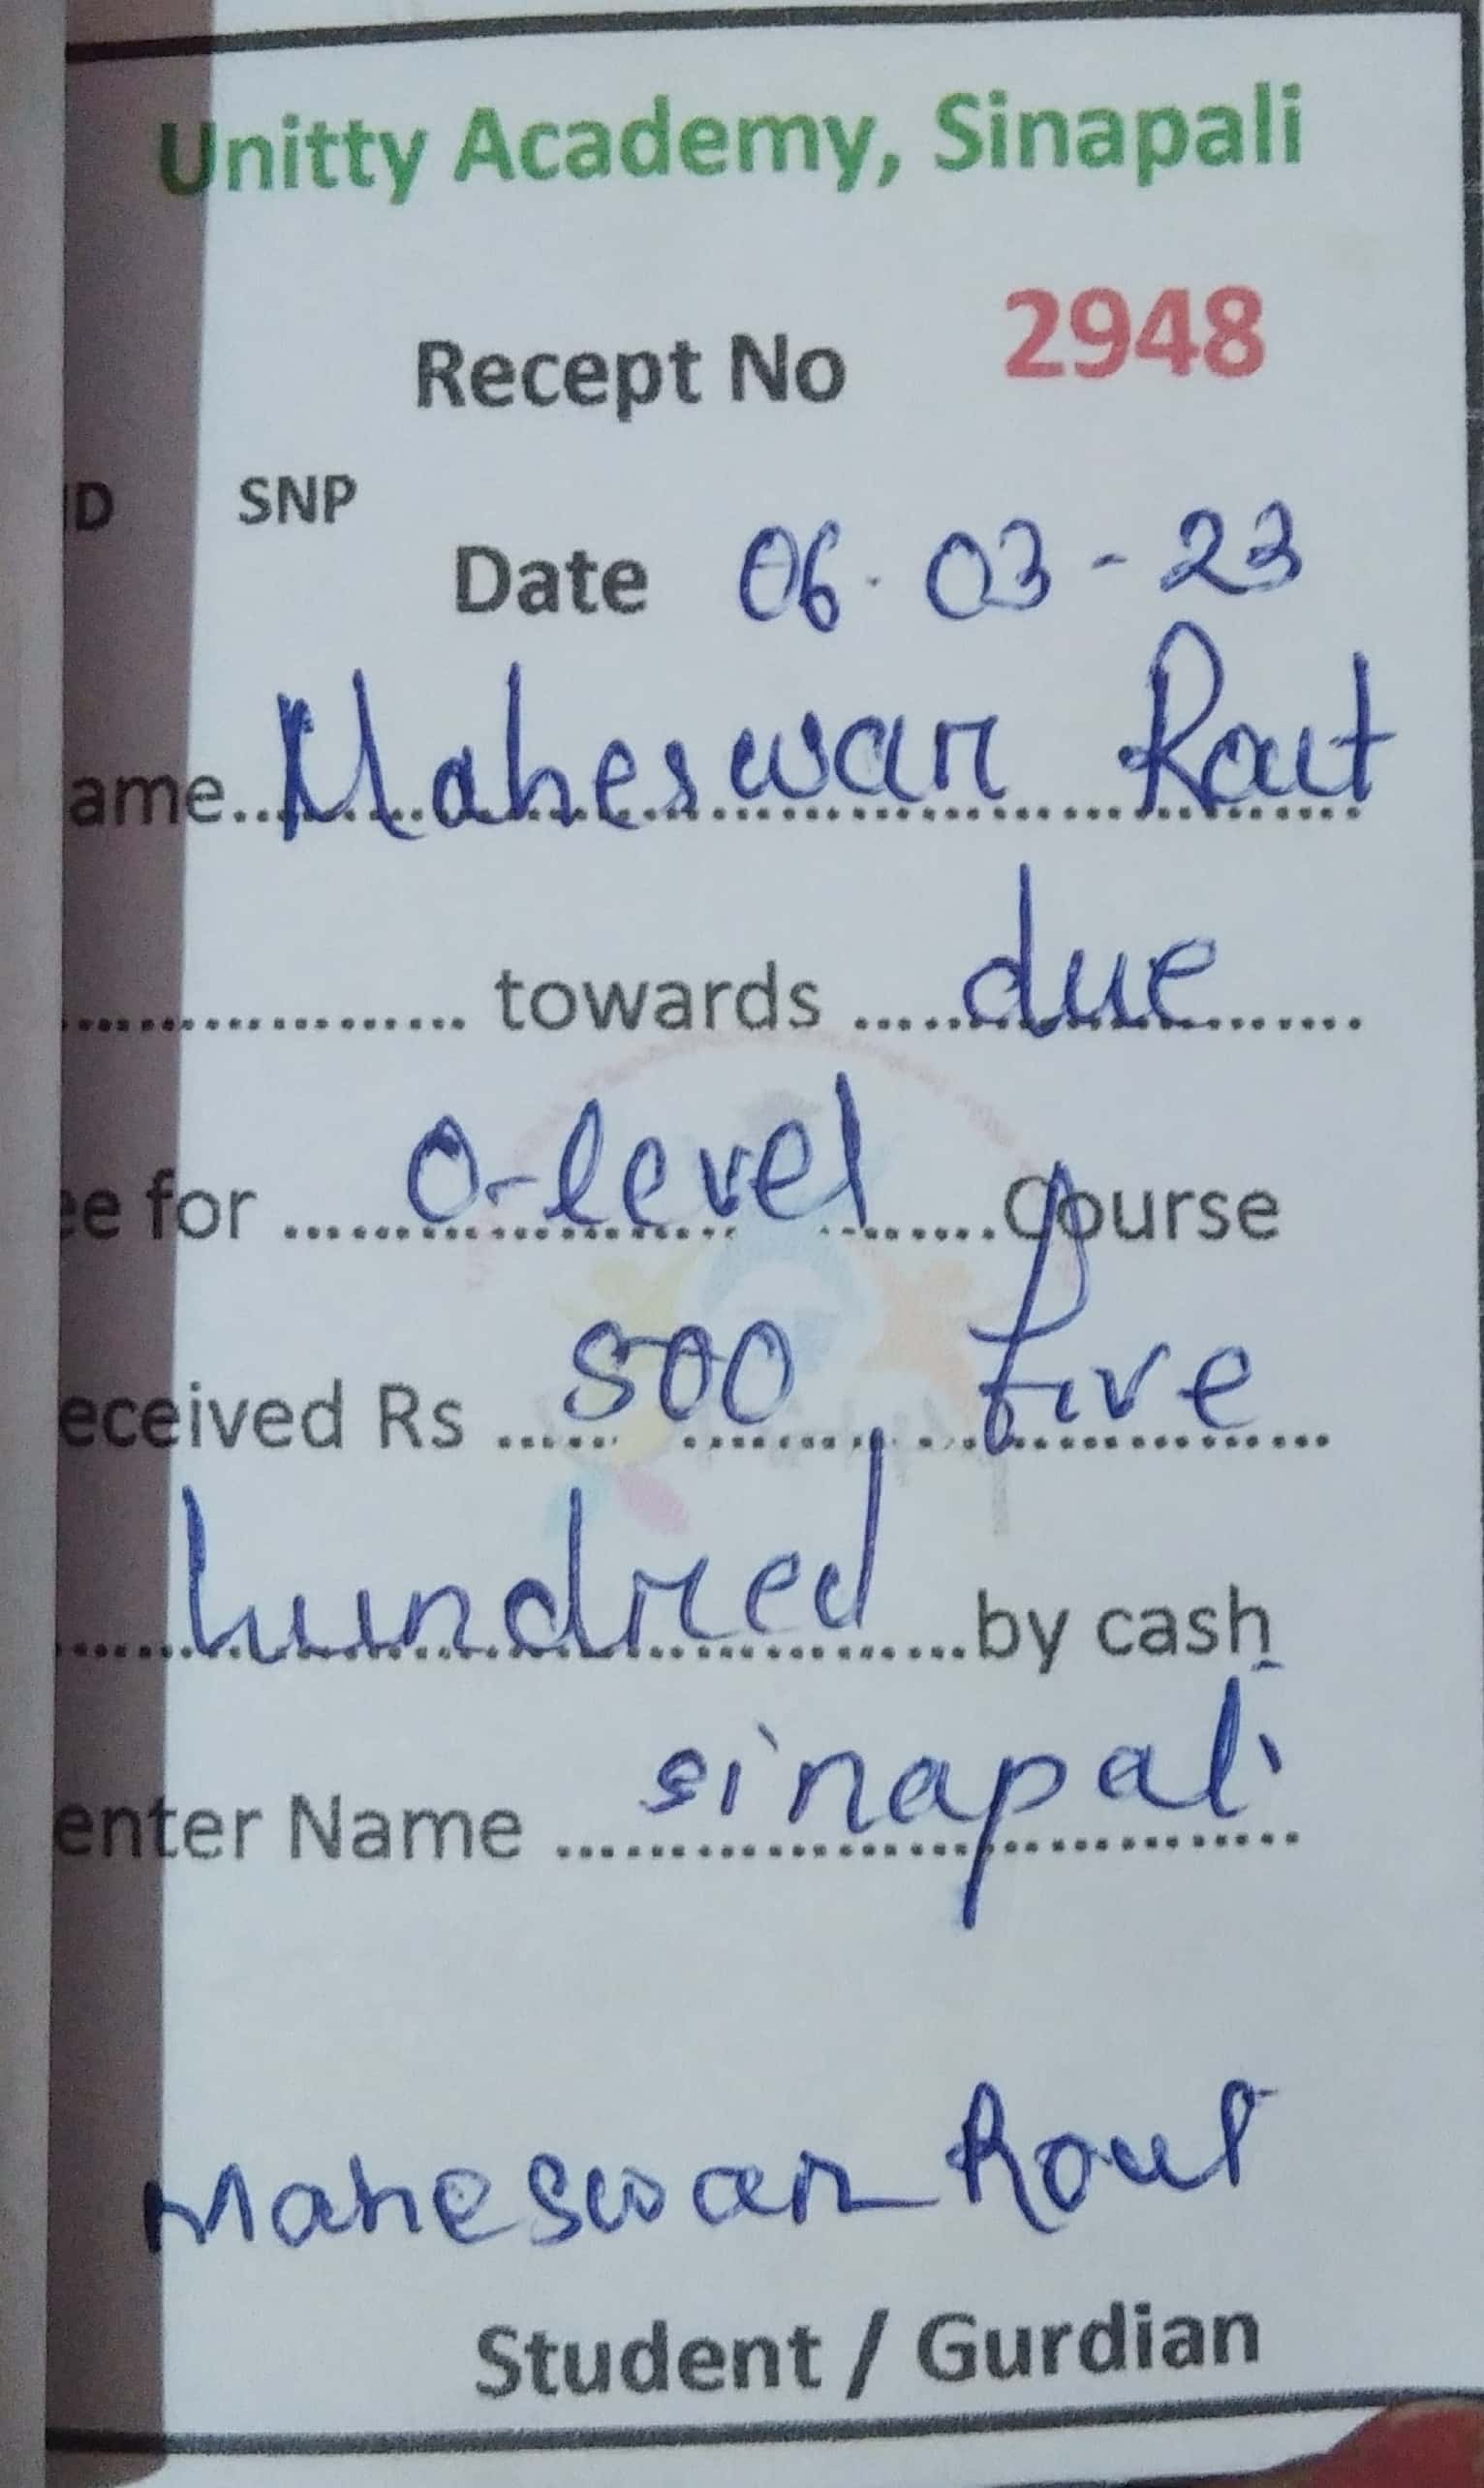 Unitty Academy, Sinapali
Recept No 2948
ID SNP
Date 06-03-23
ame.. Maheswar Rout
.................. towards ..... due .......
ee for ...... O-level ....... Course
eceived Rs ...... 500 five
..... hundred ...... by cash
enter Name ..... sinapali
Maheswar Rout
Student / Gurdian